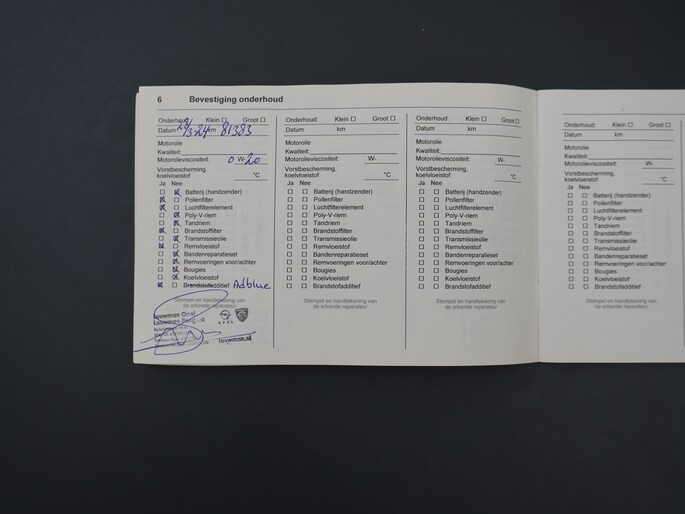 6 Bevestiging onderhoud
Onderhoud: Klein ☐ Groot ☐
Datum 28/3-24 km 81383
Motorolie
Kwaliteit:
Motorolieviscositeit: 0 W- 20
Vorstbescherming,
koelvloeistof °C
Ja Nee
Batterij (handzender)
Pollenfilter
Luchtfilterelement
Poly-V-riem
Tandriem
Brandstoffilter
Transmissieolie
Remvloeistof
Bandenreparatieset
Remvoeringen voor/achter
Bougies
Koelvloeistof
Brandstofadditief Adblue
Stempel en handtekening van
de erkende reparateur
Louwman Opel
Louwman Peugeot
OPEL
louwman.nl
Onderhoud: Klein ☐ Groot ☐
Datum km
Motorolie
Kwaliteit:
Motorolieviscositeit: W-
Vorstbescherming,
koelvloeistof °C
Ja Nee
Batterij (handzender)
Pollenfilter
Luchtfilterelement
Poly-V-riem
Tandriem
Brandstoffilter
Transmissieolie
Remvloeistof
Bandenreparatieset
Remvoeringen voor/achter
Bougies
Koelvloeistof
Brandstofadditief
Stempel en handtekening van
de erkende reparateur
Onderhoud: Klein ☐ Groot ☐
Datum km
Motorolie
Kwaliteit:
Motorolieviscositeit: W-
Vorstbescherming,
koelvloeistof °C
Ja Nee
Batterij (handzender)
Pollenfilter
Luchtfilterelement
Poly-V-riem
Tandriem
Brandstoffilter
Transmissieolie
Remvloeistof
Bandenreparatieset
Remvoeringen voor/achter
Bougies
Koelvloeistof
Brandstofadditief
Stempel en handtekening van
de erkende reparateur
Onderhoud: Klein ☐ Groot ☐
Datum km
Motorolie
Kwaliteit:
Motorolieviscositeit: W-
Vorstbescherming,
koelvloeistof °C
Ja Nee
Batterij (handzender)
Pollenfilter
Luchtfilterelement
Poly-V-riem
Tandriem
Brandstoffilter
Transmissieolie
Remvloeistof
Bandenreparatieset
Remvoeringen voor/achter
Bougies
Koelvloeistof
Brandstofadditief
Stempel en handtekening van
de erkende reparateur